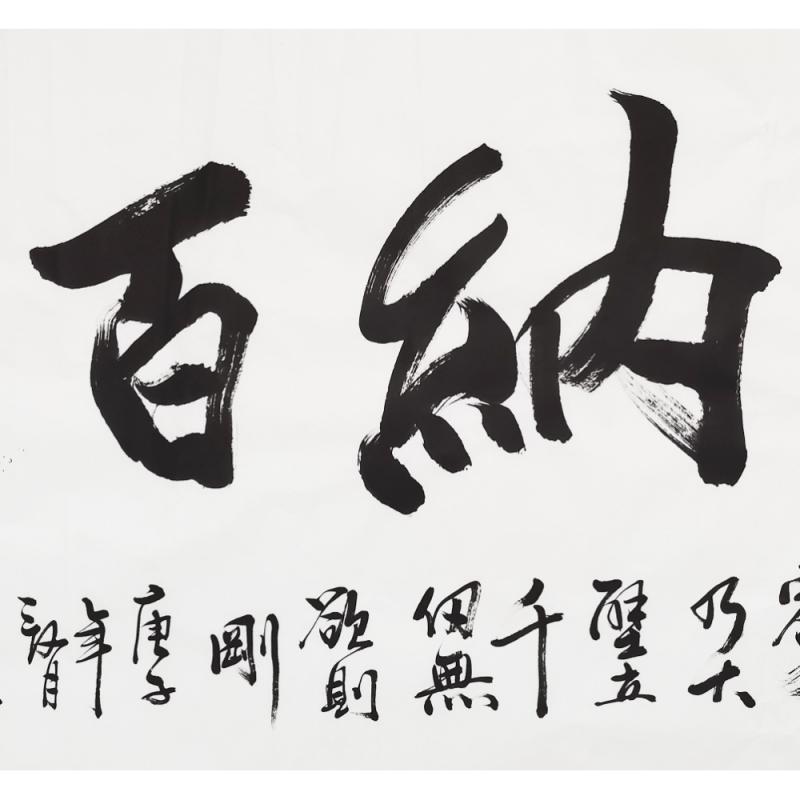 納百
乃大
壁立
千
仞無
欲則
剛
庚子
年